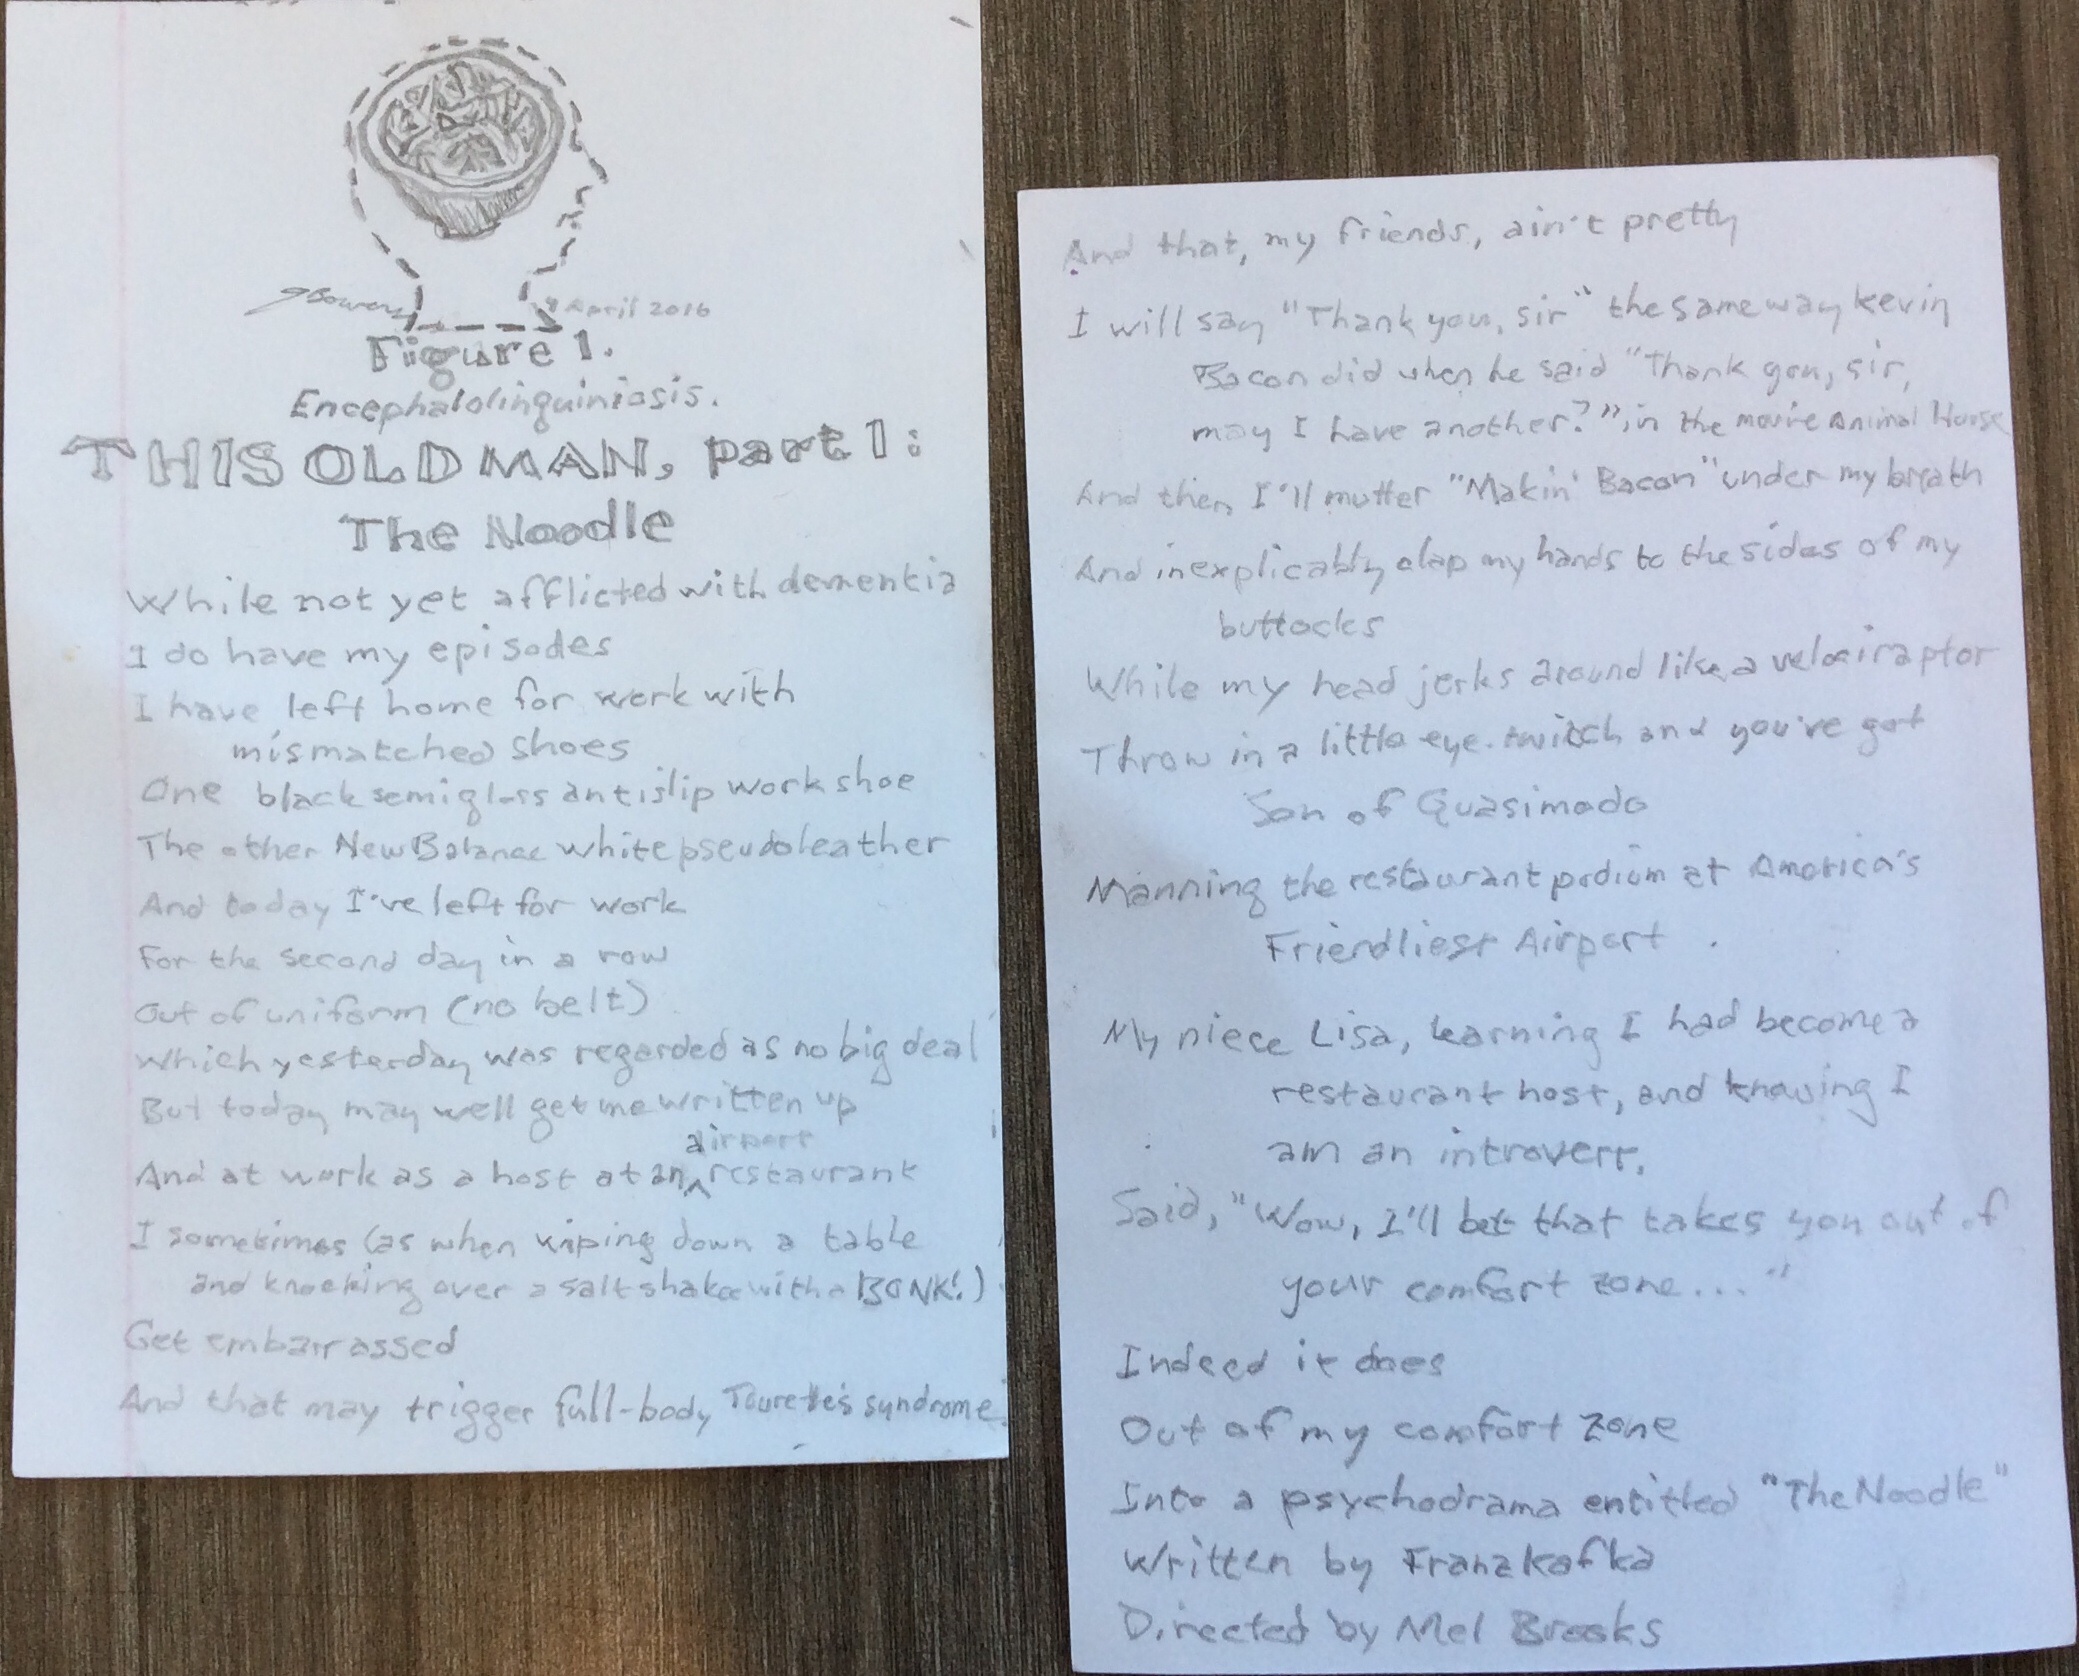 JBowers
9 April 2016
Figure 1.
Encephalolinguiniosis.
THIS OLD MAN, part 1:
The Noodle
While not yet afflicted with dementia
I do have my episodes
I have left home for work with
mismatched shoes
One black semigloss antislip work shoe
The other New Balance white pseudoleather
And today I've left for work
For the second day in a row
Out of uniform (no belt)
Which yesterday was regarded as no big deal
But today may well get me written up
And at work as a host at an airport restaurant
I sometimes (as when wiping down a table
and knocking over a salt shaker with a BONK!)
Get embarrassed
And that may trigger full-body Tourette's syndrome.
And that, my friends, ain't pretty
I will say "Thank you, sir" the same way Kevin
Bacon did when he said "Thank you, sir,
may I have another?", in the movie Animal House
And then I'll mutter "Makin' Bacon" under my breath
And inexplicably clap my hands to the sides of my
buttocks
While my head jerks around like a velociraptor
Throw in a little eye-twitch and you've got
Son of Quasimodo
Manning the restaurant podium at America's
Friendliest Airport.
My niece Lisa, learning I had become a
restaurant host, and knowing I
am an introvert,
Said, "Wow, I'll bet that takes you out of
your comfort zone..."
Indeed it does
Out of my comfort zone
Into a psychodrama entitled "The Noodle"
Written by Franz Kafka
Directed by Mel Brooks